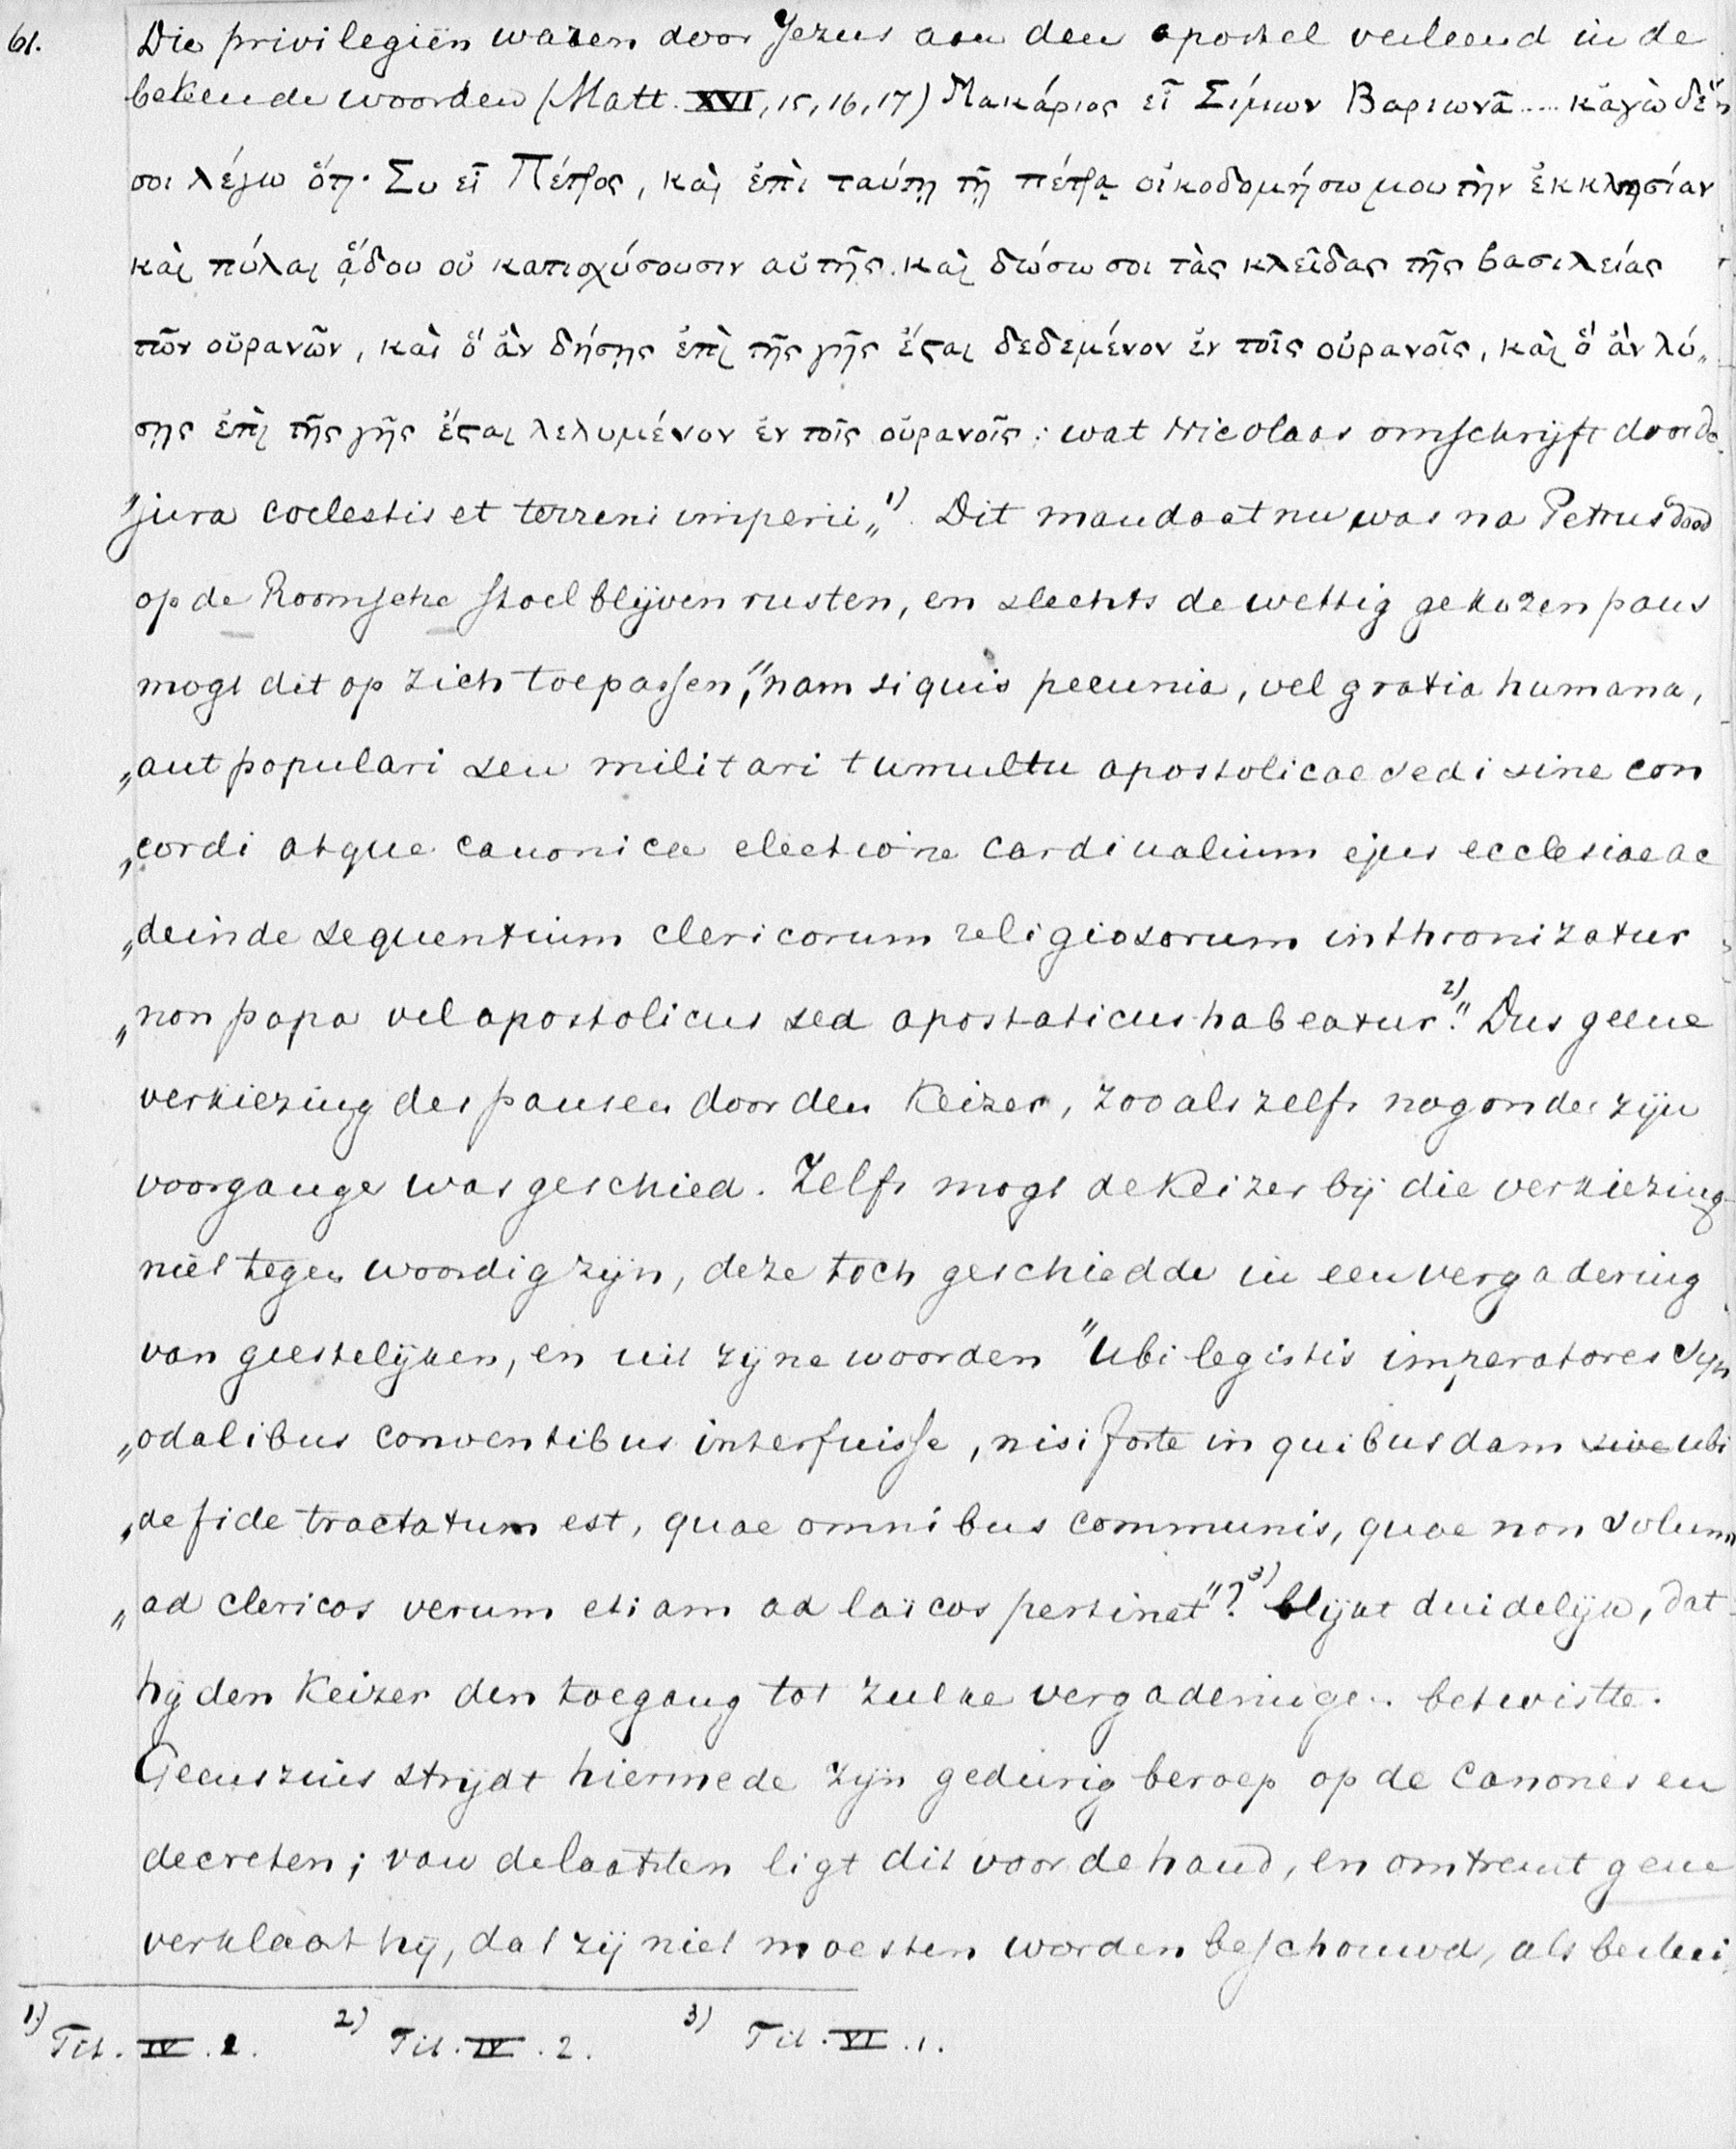 61. Die privilegiën waren door Jezus aan den apostel verleend in de
bekende woorden (Matt. XVI, 15, 16, 17) Μακάριος εἶ Σίμων Βαριωνᾶ .... κἀγὼ δέ
σοι λέγω ὅτι· Συ εἶ Πέτρος, καὶ ἐπὶ ταύτῃ τῇ πέτρᾳ οἰκοδομήσω μου τὴν ἐκκλησίαν
καὶ πύλαι ᾅδου οὐ κατισχύσουσιν αὐτῆς. καὶ δώσω σοι τὰς κλεῖδας τῆς βασιλείας
τῶν οὐρανῶν, καὶ ὅ ἂν δήσῃς ἐπὶ τῆς γῆς ἔςαι δεδεμένον ἐν τοῖς οὐρανοῖς, καὶ ὅ ἂν λύ„
σῃς ἐπὶ τῆς γῆς ἔςαι λελυμένον ἐν τοῖς οὐρανοῖς: wat Nicolaas omschrijft door de
"jura coelestis et terreni imperii„ 1) Dit mandaat nu was na Petrus dood
op de Roomsche stoel blijven rusten, en slechts de wettig gekozen paus
mogt dit op zich toepassen, "nam si quis pecunia, vel gratia humana,
„aut populari seu militari tumultu apostolicae sedi sine con
„cordi atque canonica electione cardinalium ejus ecclesiae ac
„deinde sequentium clericorum religiosorum inthronizatur
„non papa vel apostolicus sed apostaticus habeatur." 2) Dus geene
verkiezing des pausen door den Keizer, zooals zelfs nog onder zijn
voorganger was geschied. Zelfs mogt de Keizer bij die verkiezing
niet tegenwoordig zijn, deze toch geschiedde in een vergadering
van geestelijken, en uit zijne woorden "Ubi legistis imperatores syn
„odalibus conventibus interfuisse, nisi forte in quibusdam ubi
„de fide tractatum est, quae omnibus communis, quae non solum
„ad clericos verum etiam ad laïcos pertinet"? 3) blijkt duidelijk, dat
hij den Keizer den toegang tot zulke vergaderingen betwistte.
Geenszins strijdt hiermede zijn gedurig beroep op de canones en
decreten; van de laatsten ligt dit voor de hand, en omtrent gene
verklaart hij, dat zij niet moesten worden beschouwd, als
1) Tit. IV. 2. 2) Tit. IV. 2. 3) Tit. VI. 1.